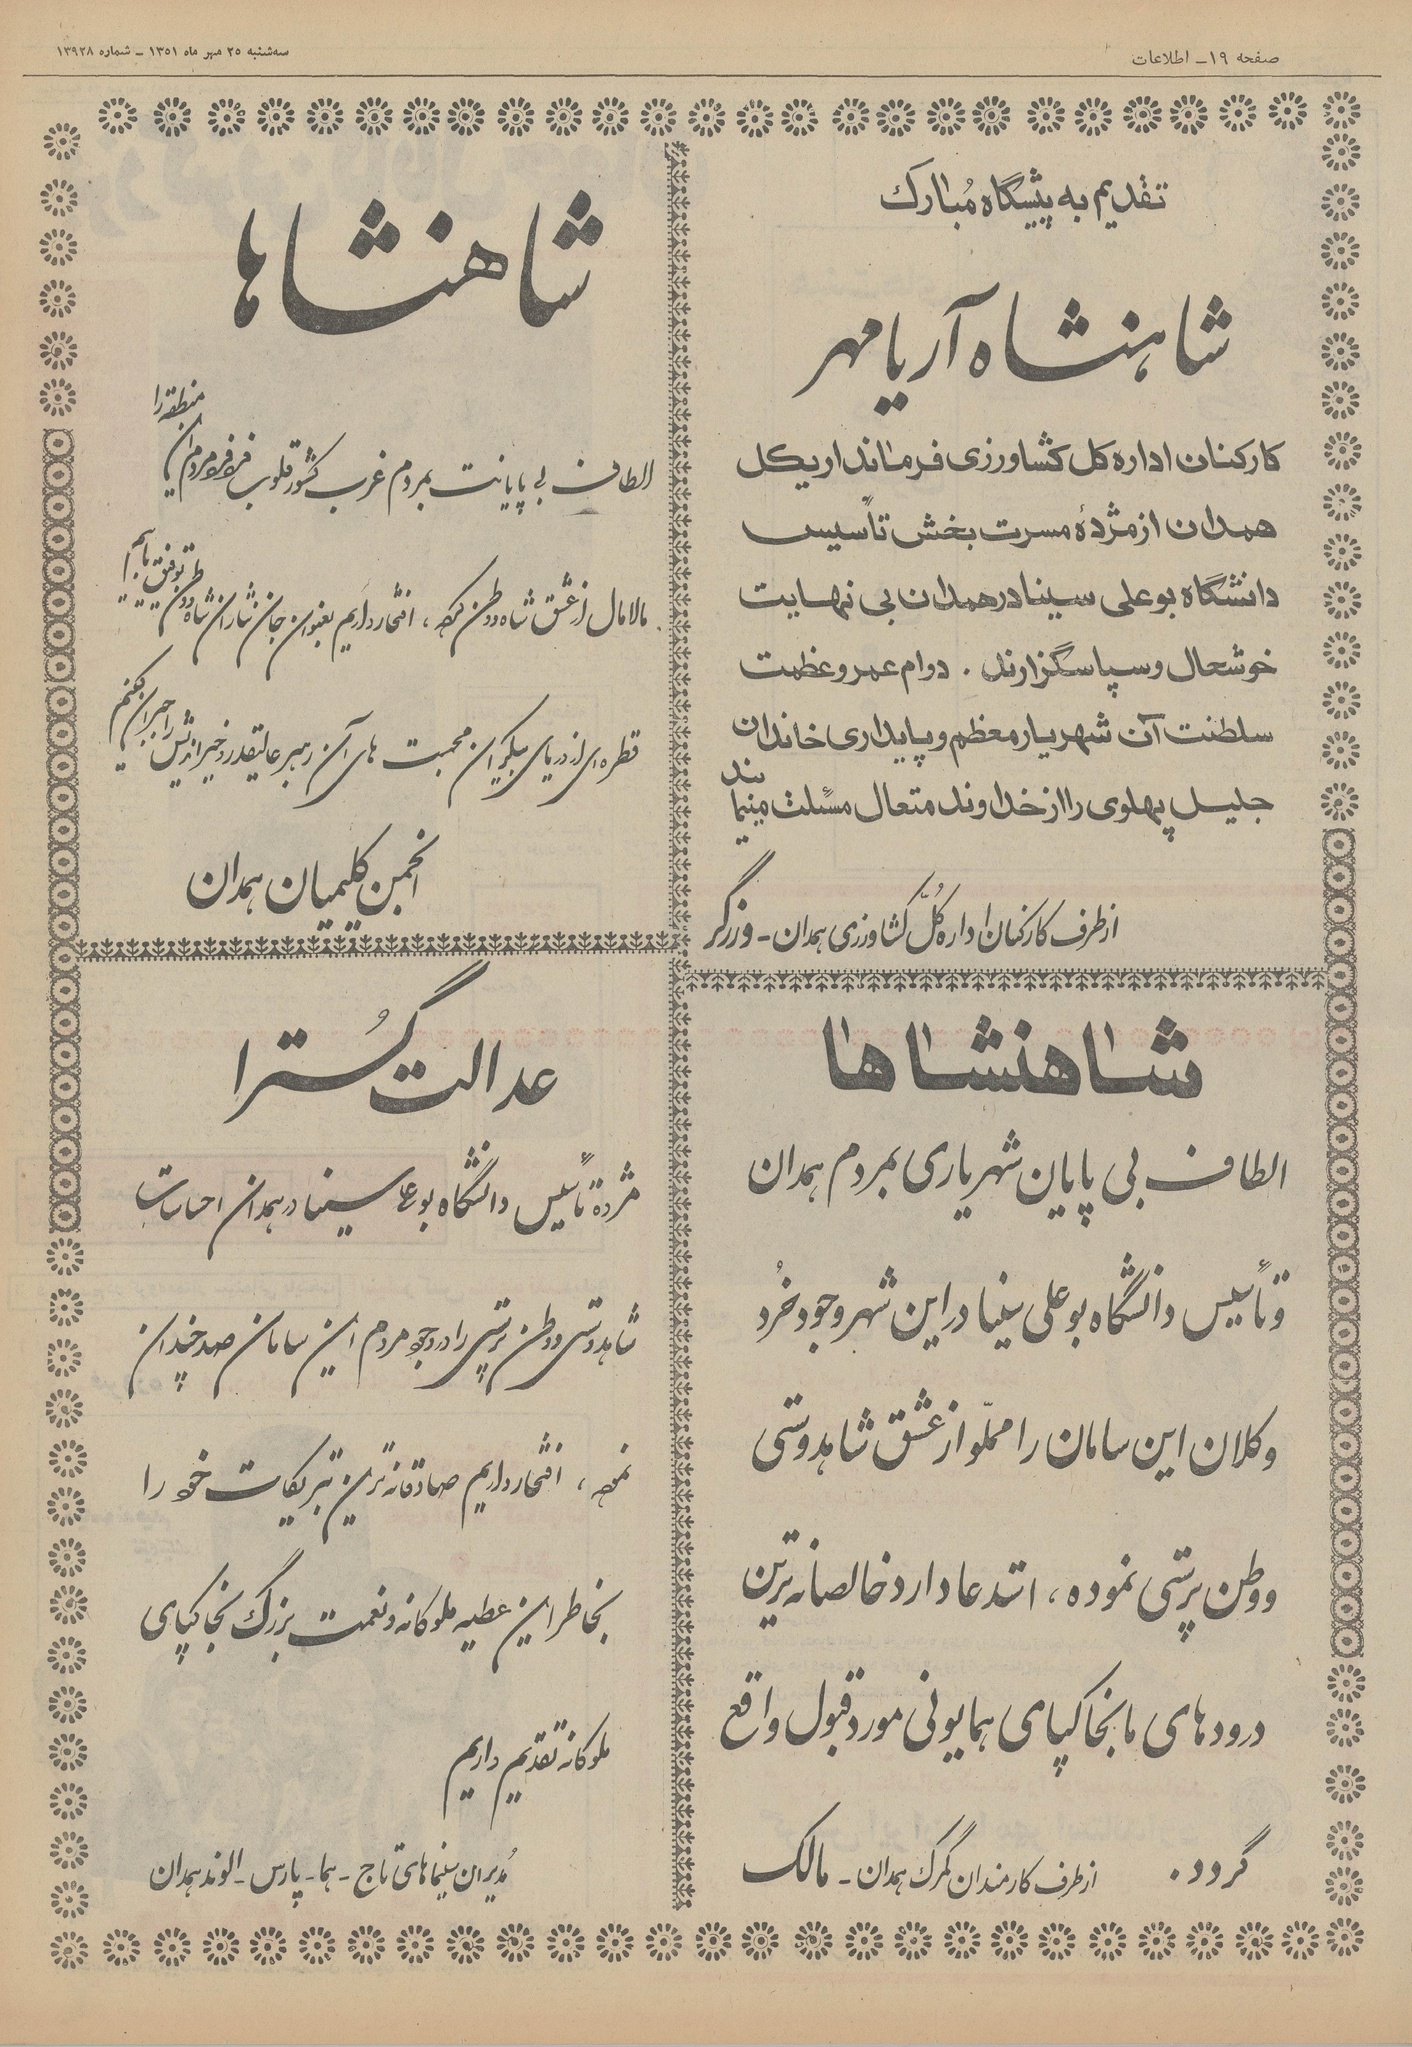 صفحه ۱۹ـ اطلاعات
سه‌شنبه ۲۵ مهر ماه ۱۳۵۱ ـ شماره ۱۳۹۲۸
تقدیم به پیشگاه مُبارک
شاهنشاه آریامهر
کارکنان اداره کل کشاورزی فرمانداریکل
همدان از مژدهٔ مسرت بخش تأسیس
دانشگاه بوعلی سینا در همدان بی نهایت
خوشحال و سپاسگزارند . دوام عمر و عظمت
سلطنت آن شهریار معظم و پایداری خاندان
جلیل پهلوی را از خداوند متعال مسئلت مینمایند
از طرف کارکنان اداره کلّ کشاورزی همدان ـ ورزگر
شاهنشاها
الطاف بی پایانت بمردم غرب کشور قلوب فرد فرد مردم این منطقه را
مالامال از عشق شاه و وطن کرده ، افتخار داریم بعنوان جان نثاران شاه و وطن توفیق یابیم
قطره‌ای از دریای بیکران محبت های آن رهبر عالیقدر و خیراندیش را جبران بکنیم
انجمن کلیمیان همدان
شاهنشاها
الطاف بی پایان شهریاری بمردم همدان
و تأسیس دانشگاه بوعلی سینا در این شهر وجود خُرد
و کلان این سامان را مملّو از عشق شاهدوستی
و وطن پرستی نموده ، استدعا دارد خالصانه ترین
درودهای ما بخاکپای همایونی مورد قبول واقع
گردد .
از طرف کارمندان گمرک همدان ـ مالک
عدالت گُسترا
مژدهٔ تأسیس دانشگاه بوعلی سینا در همدان احساسات
شاهدوستی و وطن پرستی را در وجود مردم این سامان صد چندان
نموده ، افتخار داریم صادقانه ترین تبریکات خود را
بخاطر این عطیه ملوکانه و نعمت بزرگ بخاکپای
ملوکانه تقدیم داریم
مُدیران سینماهای تاج ـ هما ـ پارس ـ الوند همدان